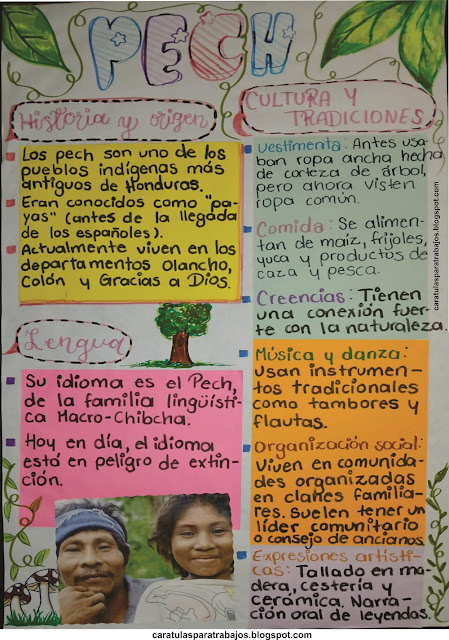 PECH
Historia y origen
Los pech son uno de los
pueblos indígenas más
antiguos de Honduras.
Eran conocidos como "pa-
yas" (antes de la llegada
de los españoles).
Actualmente viven en los
departamentos Olancho,
Colón y Gracias a Dios.
Lengua
Su idioma es el Pech,
de la familia lingüísti-
ca Macro-Chibcha.
Hoy en día, el idioma
está en peligro de extin-
ción.
CULTURA Y
TRADICIONES
Vestimenta: Antes usa-
ban ropa ancha hecha
de corteza de árbol,
pero ahora visten
ropa común.
Comida: Se alimen-
tan de maíz, frijoles,
yuca y productos de
caza y pesca.
Creencias: Tienen
una conexión fuer-
te con la naturaleza.
Música y danza:
Usan instrumen-
tos tradicionales
como tambores y
flautas.
Organización social:
Viven en comunida-
des organizadas
en clanes familia-
res. Suelen tener un
líder comunitario
o consejo de ancianos.
Expresiones artísti-
cas: Tallado en ma-
dera, cestería y
cerámica. Narra-
ción oral de leyendas.
caratulasparatrabajos.blogspot.com
caratulasparatrabajos.blogspot.com